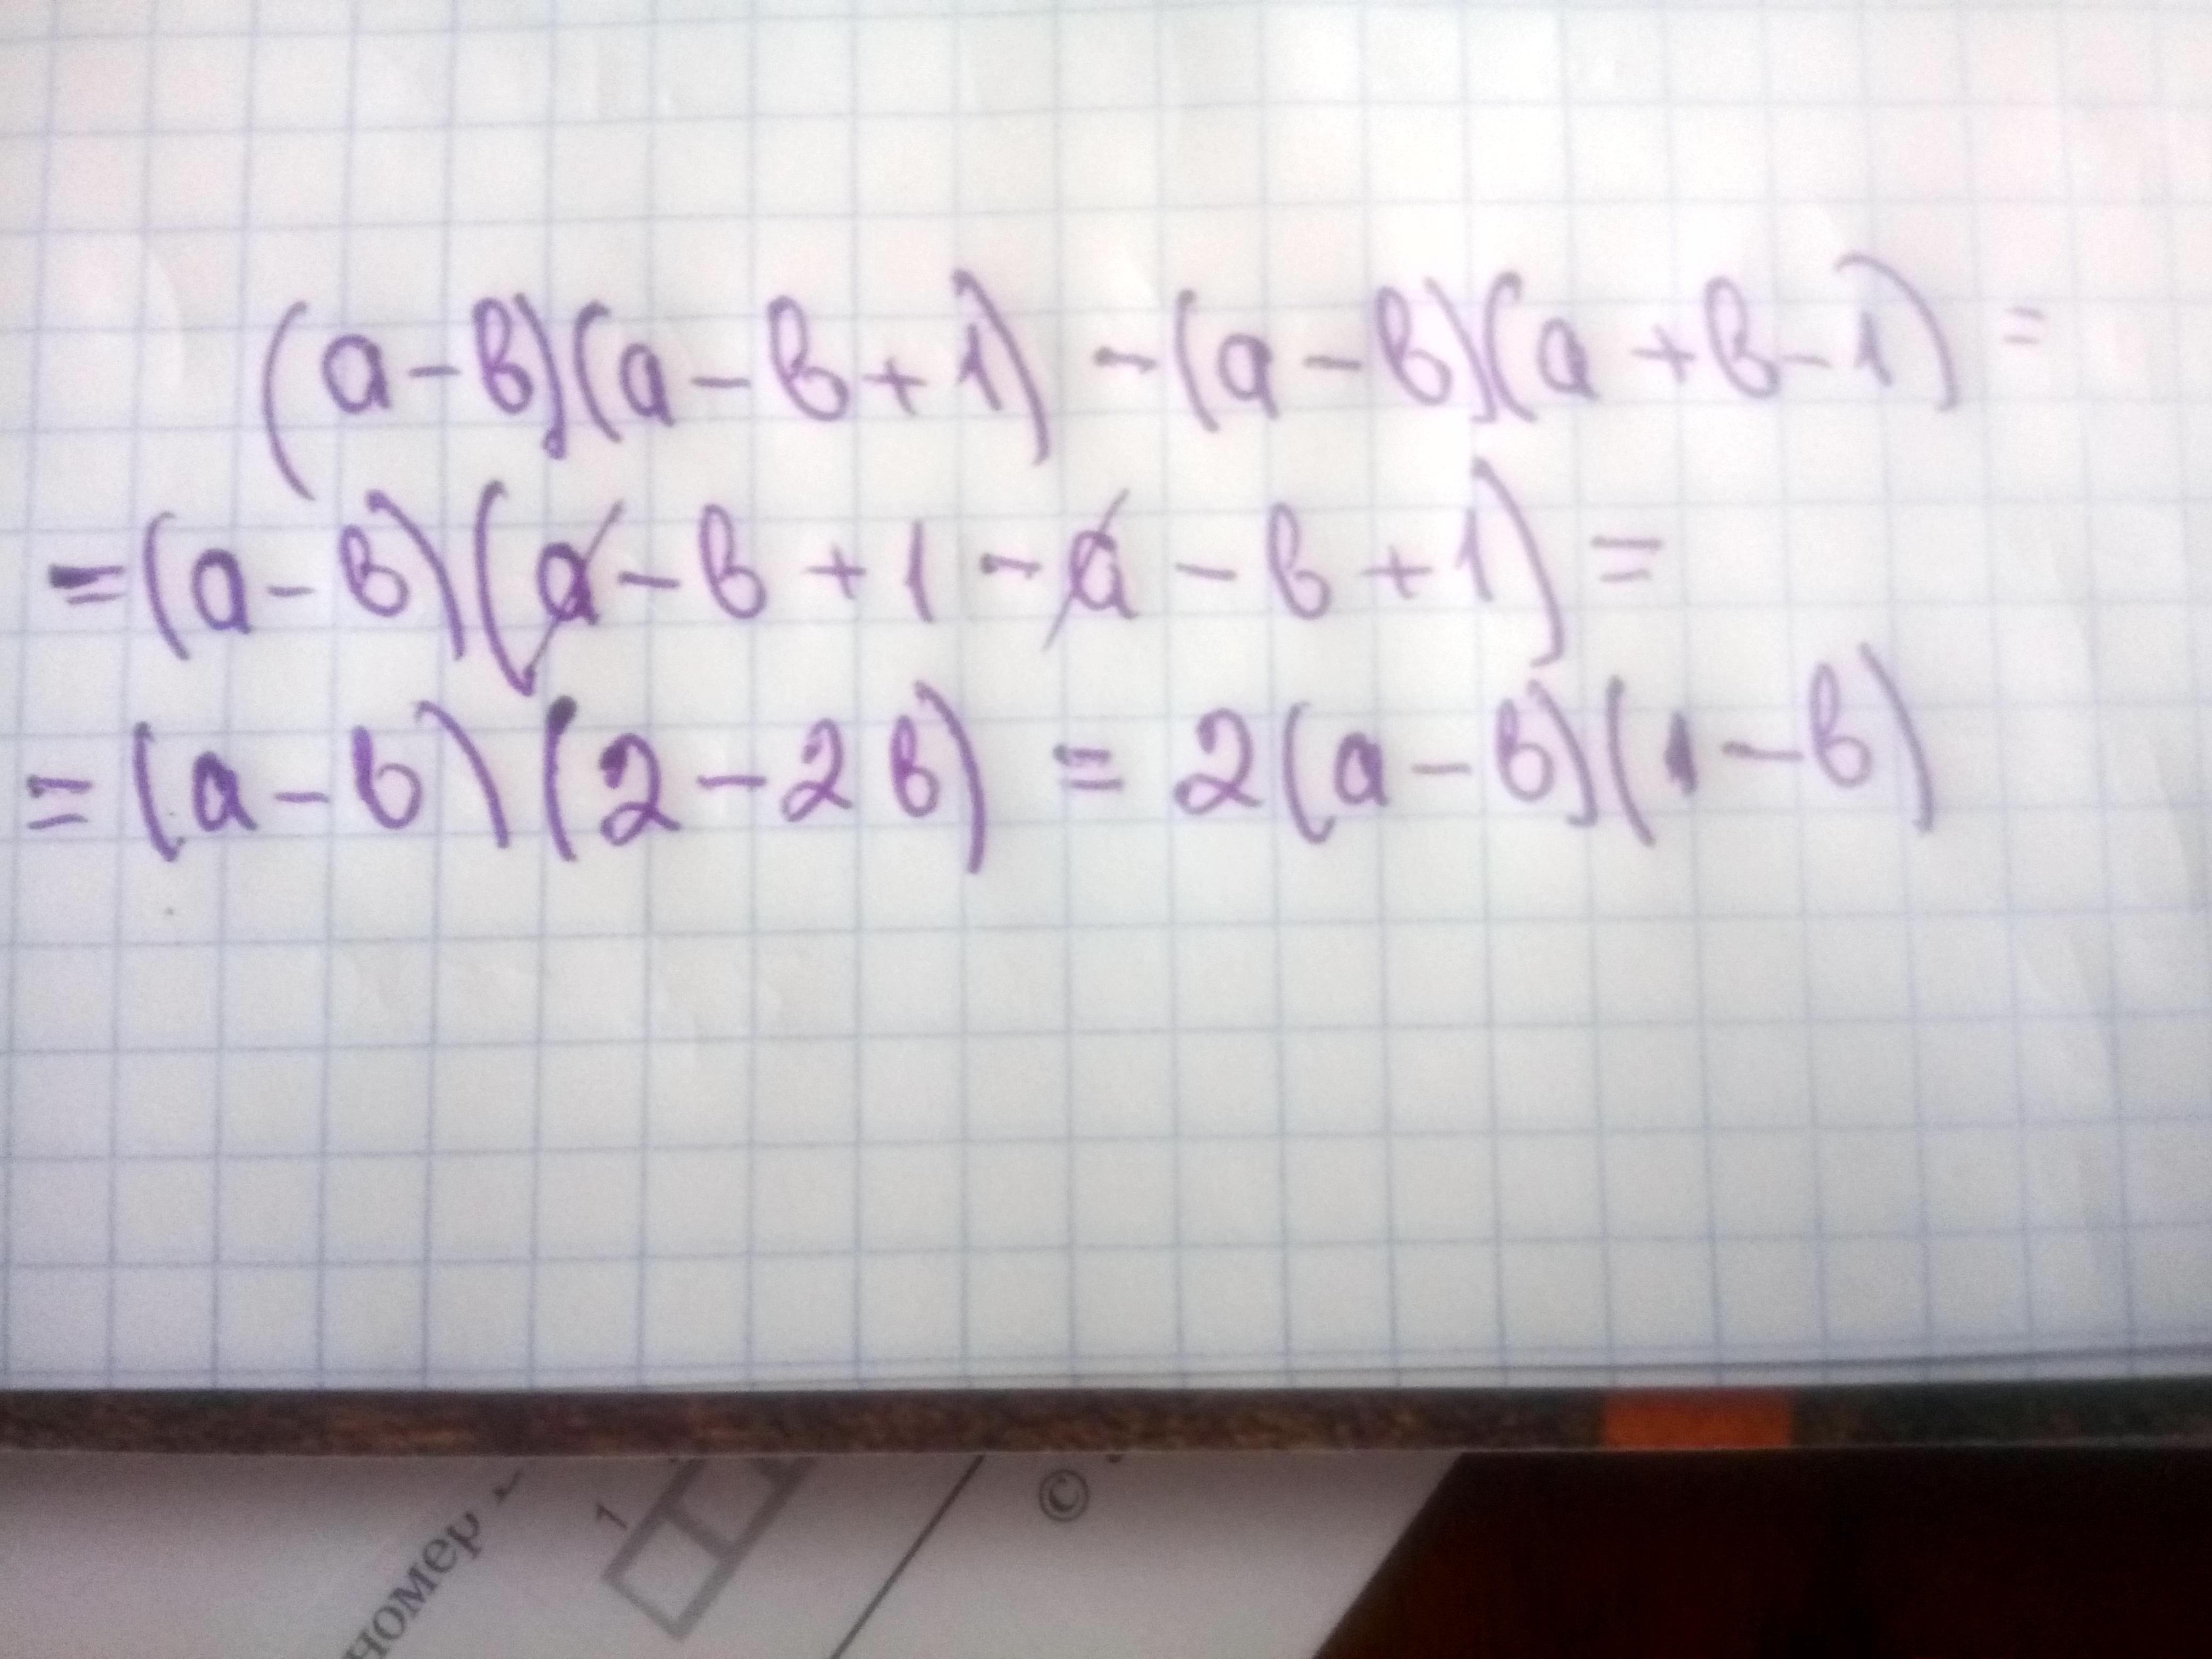 (a-b)(a-b+1)-(a-b)(a+b-1)=
=(a-b)(a-b+1-a-b+1)=
=(a-b)(2-2b)=2(a-b)(1-b)
номер
1
©